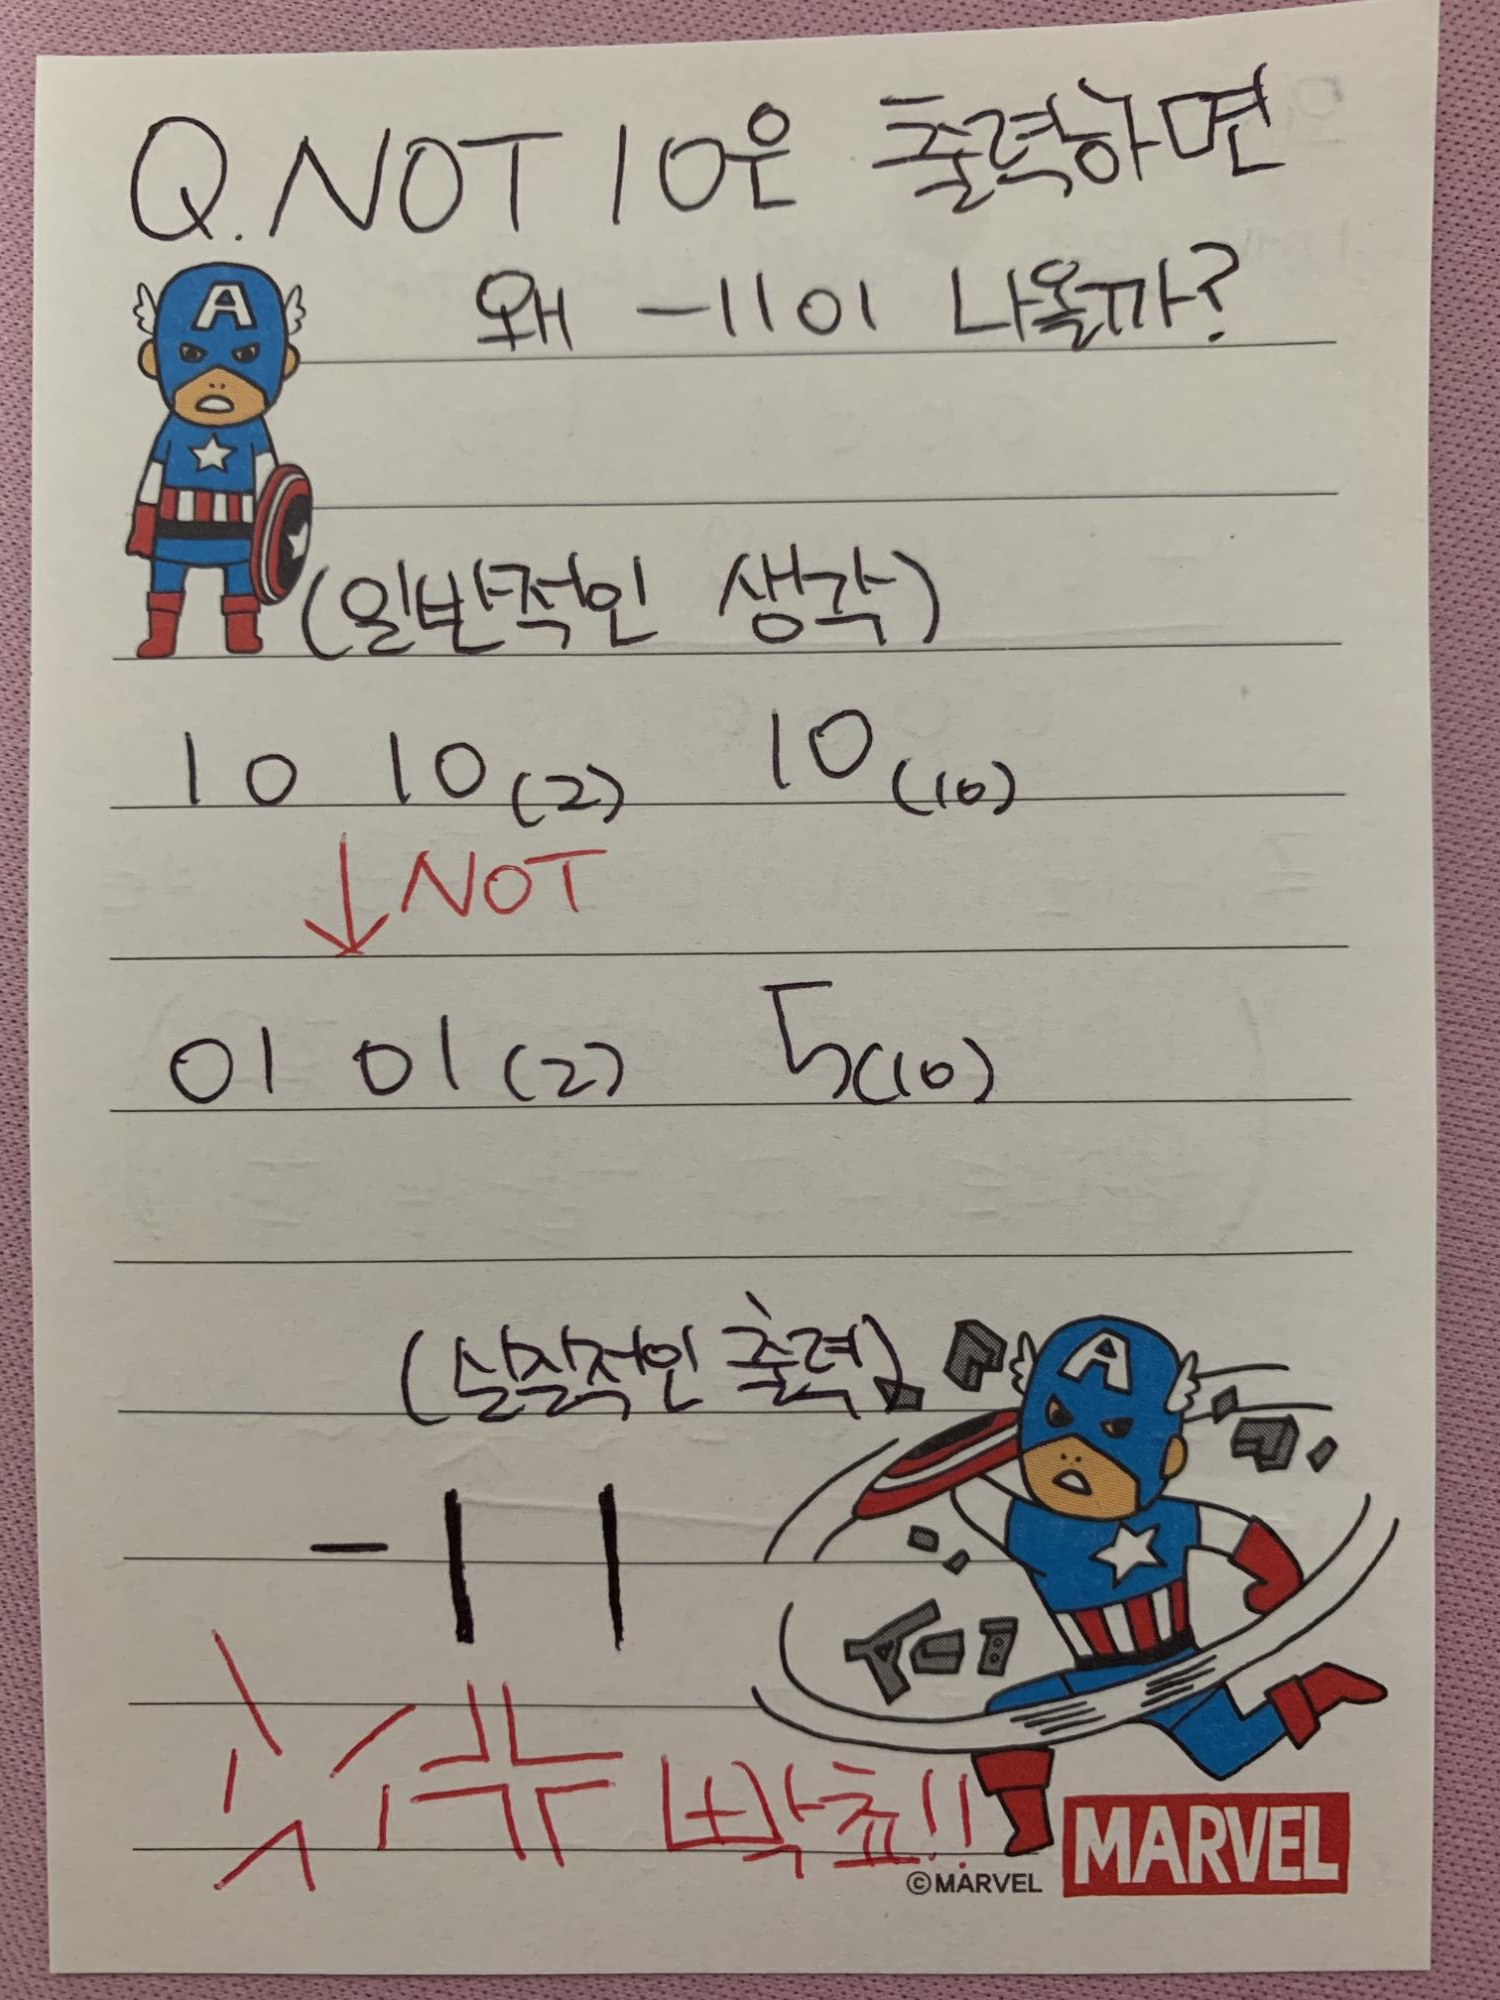 Q. NOT 10은 출력하면
왜 -11이 나올까?
(일반적인 생각)
10 10(2) 10(10)
↓NOT
01 01(2) 5(10)
(실질적인 출력)
-11
빡쵸!!
©MARVEL
MARVEL
A
A